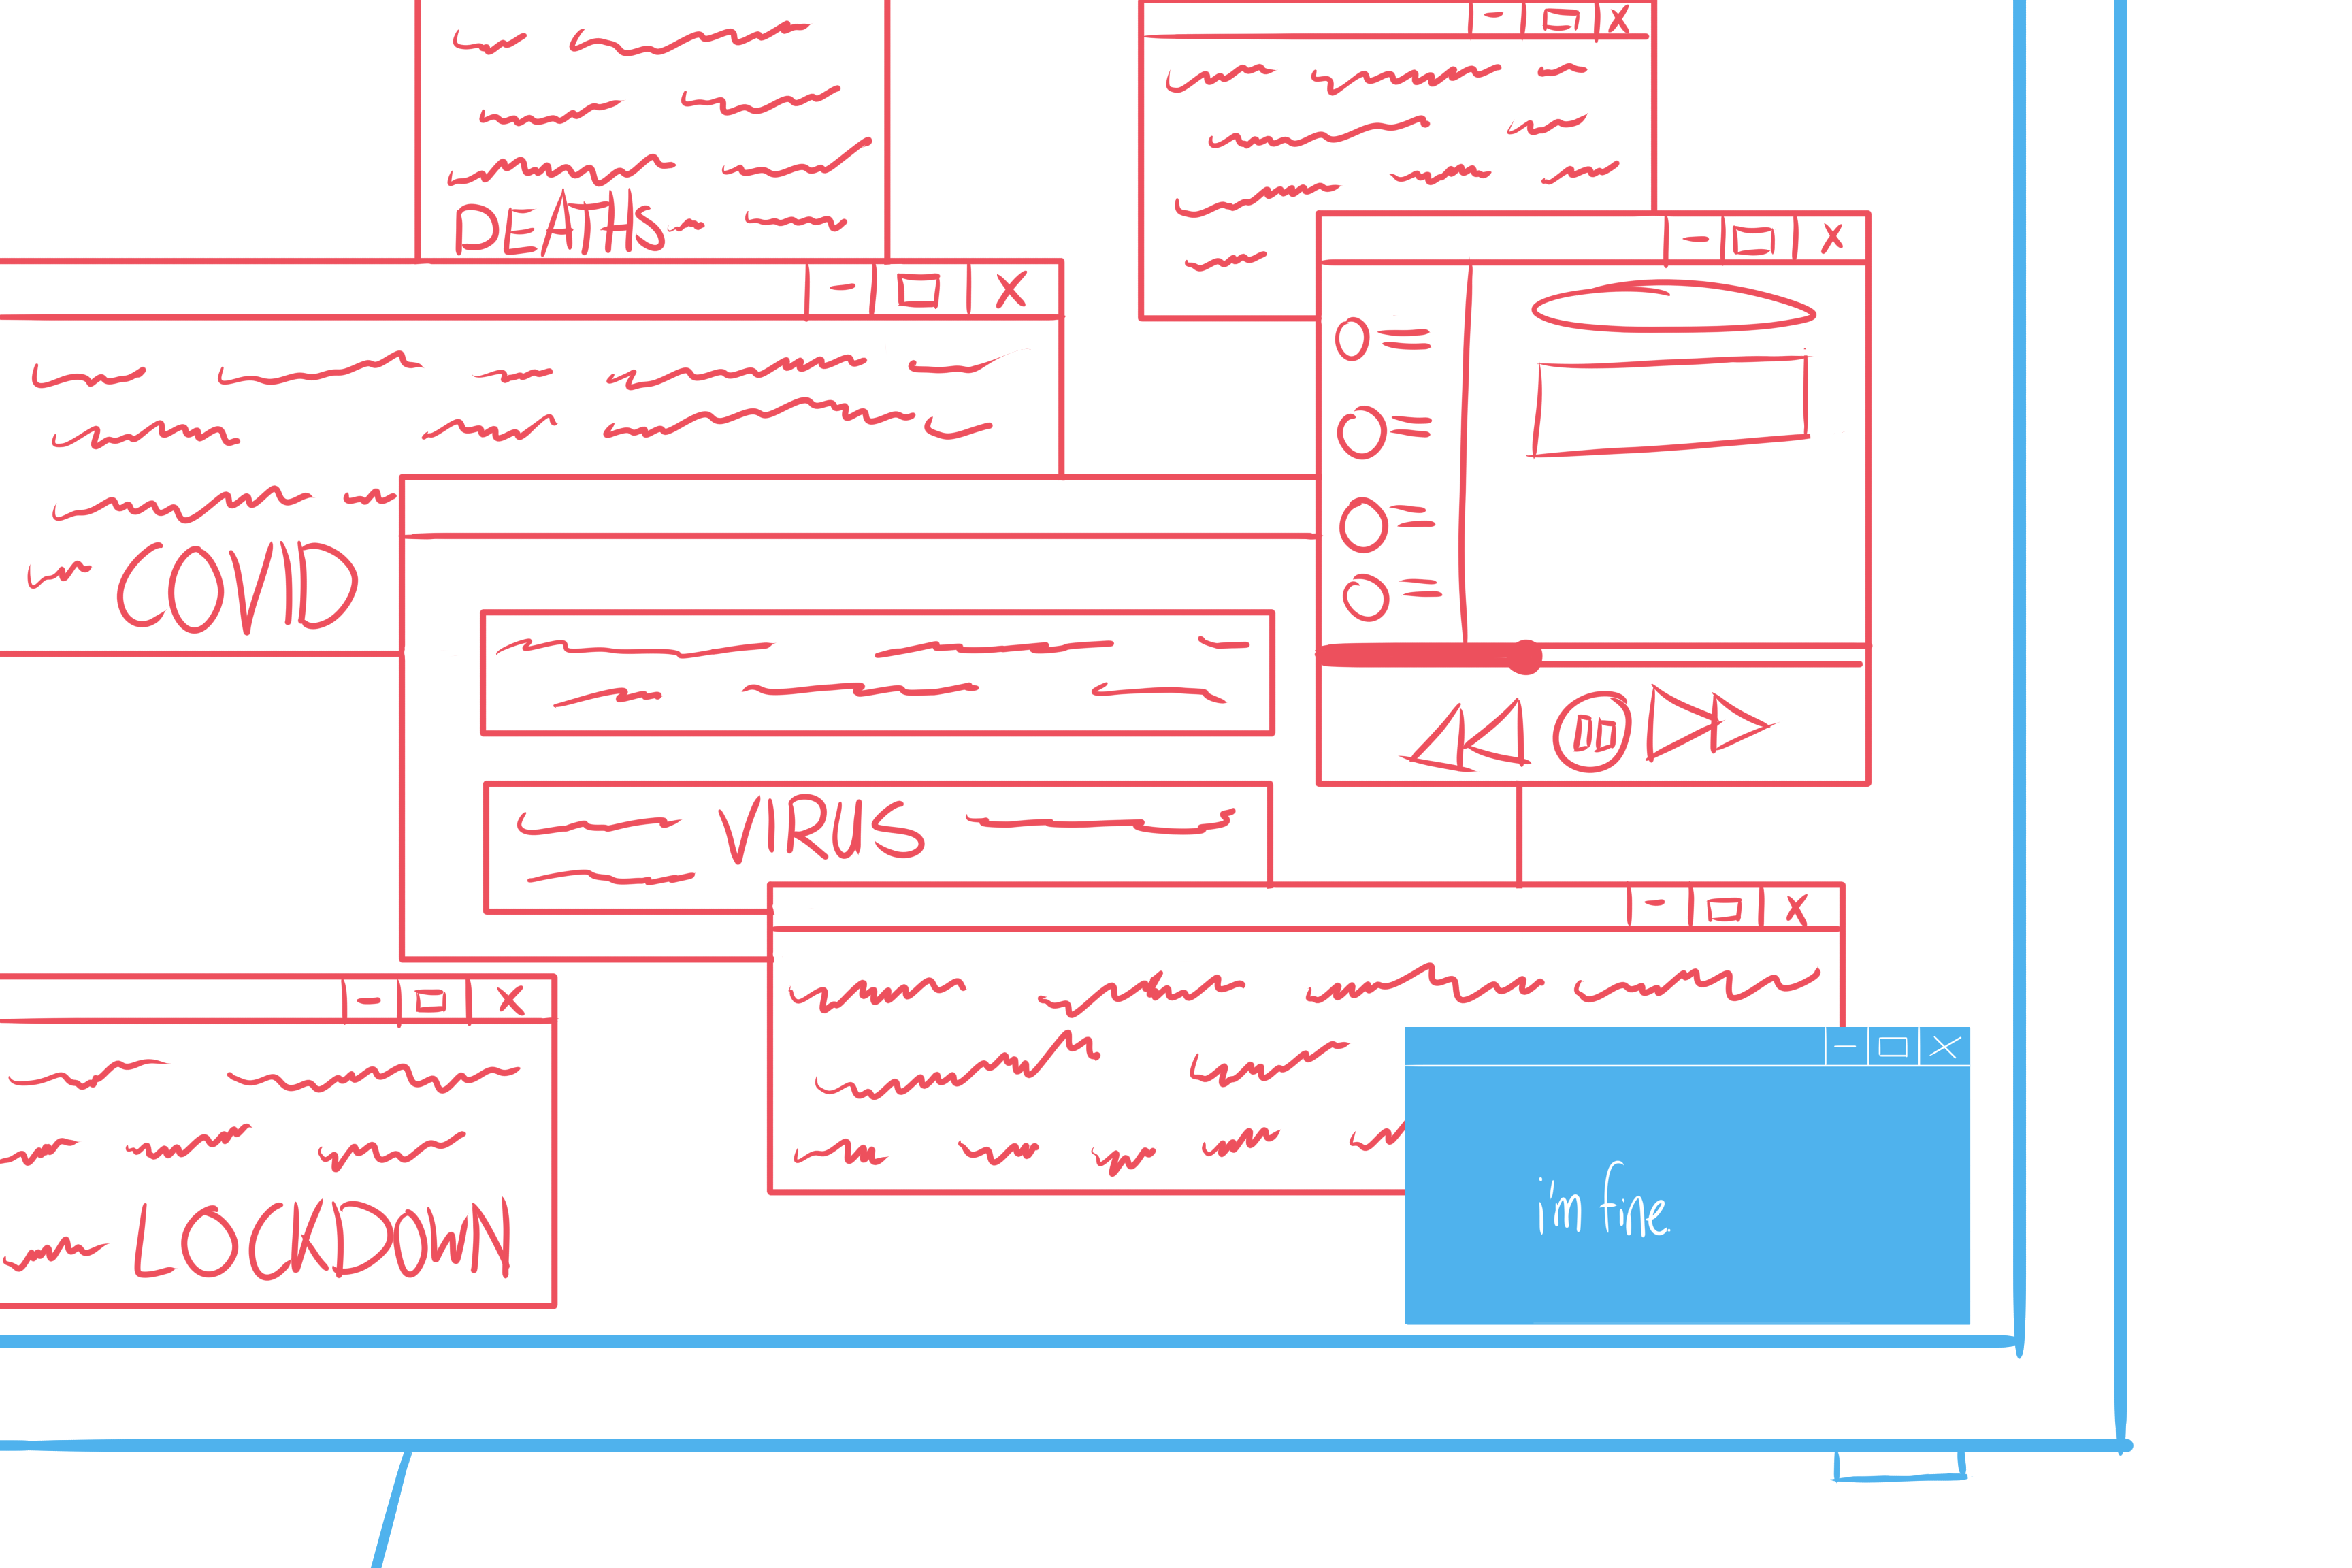 DEATHS
COVID
VIRUS
LOCKDOWN
i'm fine.